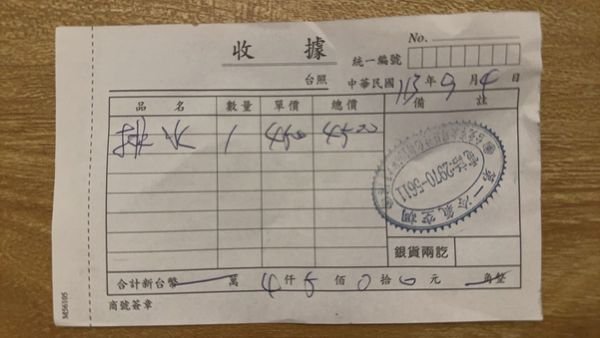 No.
收 據
統一編號
台照 中華民國 113 年 9 月 4 日
品 名 數量 單價 總價 備 註
排水 1 4500 4500
電話:2970-5611
第一冷氣空調
銀貨兩訖
合計新台幣 萬 4 仟 5 佰 0 拾 0 元 角整
商號簽章
MS6105